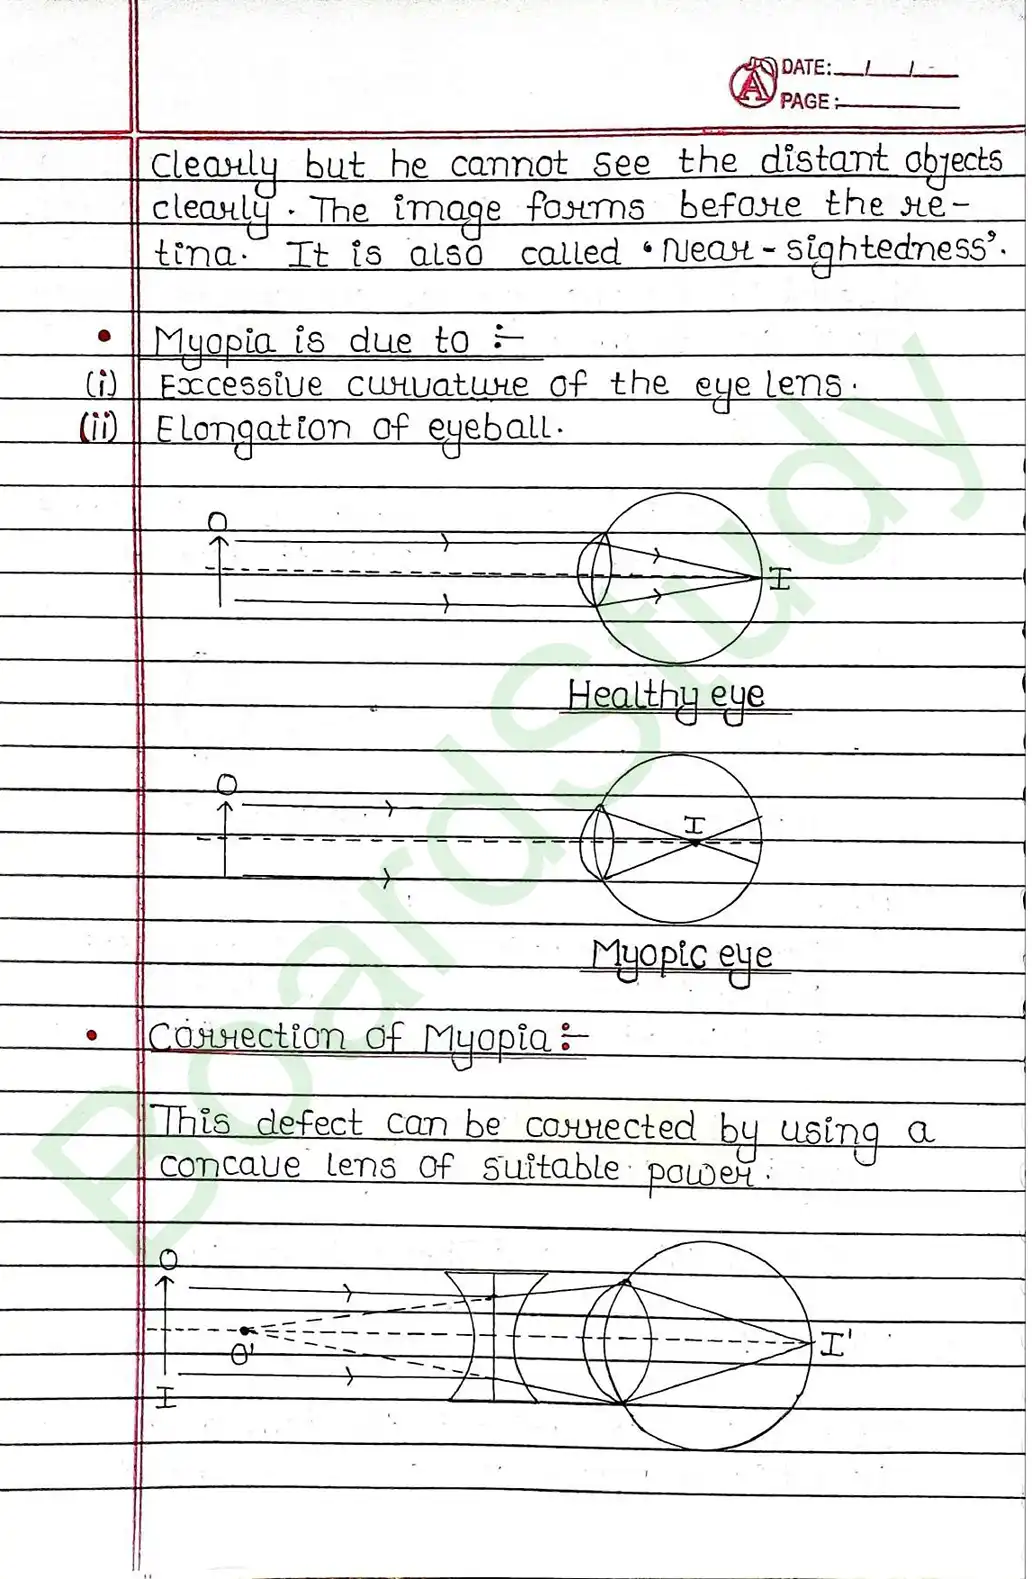 DATE: / /
PAGE:
clearly but he cannot see the distant objects
clearly. The image forms before the re-
tina. It is also called 'Near-sightedness'.
• Myopia is due to :-
(i) Excessive curvature of the eye lens.
(ii) Elongation of eyeball.
O
I
Healthy eye
O
I
Myopic eye
• Correction of Myopia :-
This defect can be corrected by using a
concave lens of suitable power.
O
O'
I'
I
BoardStudy